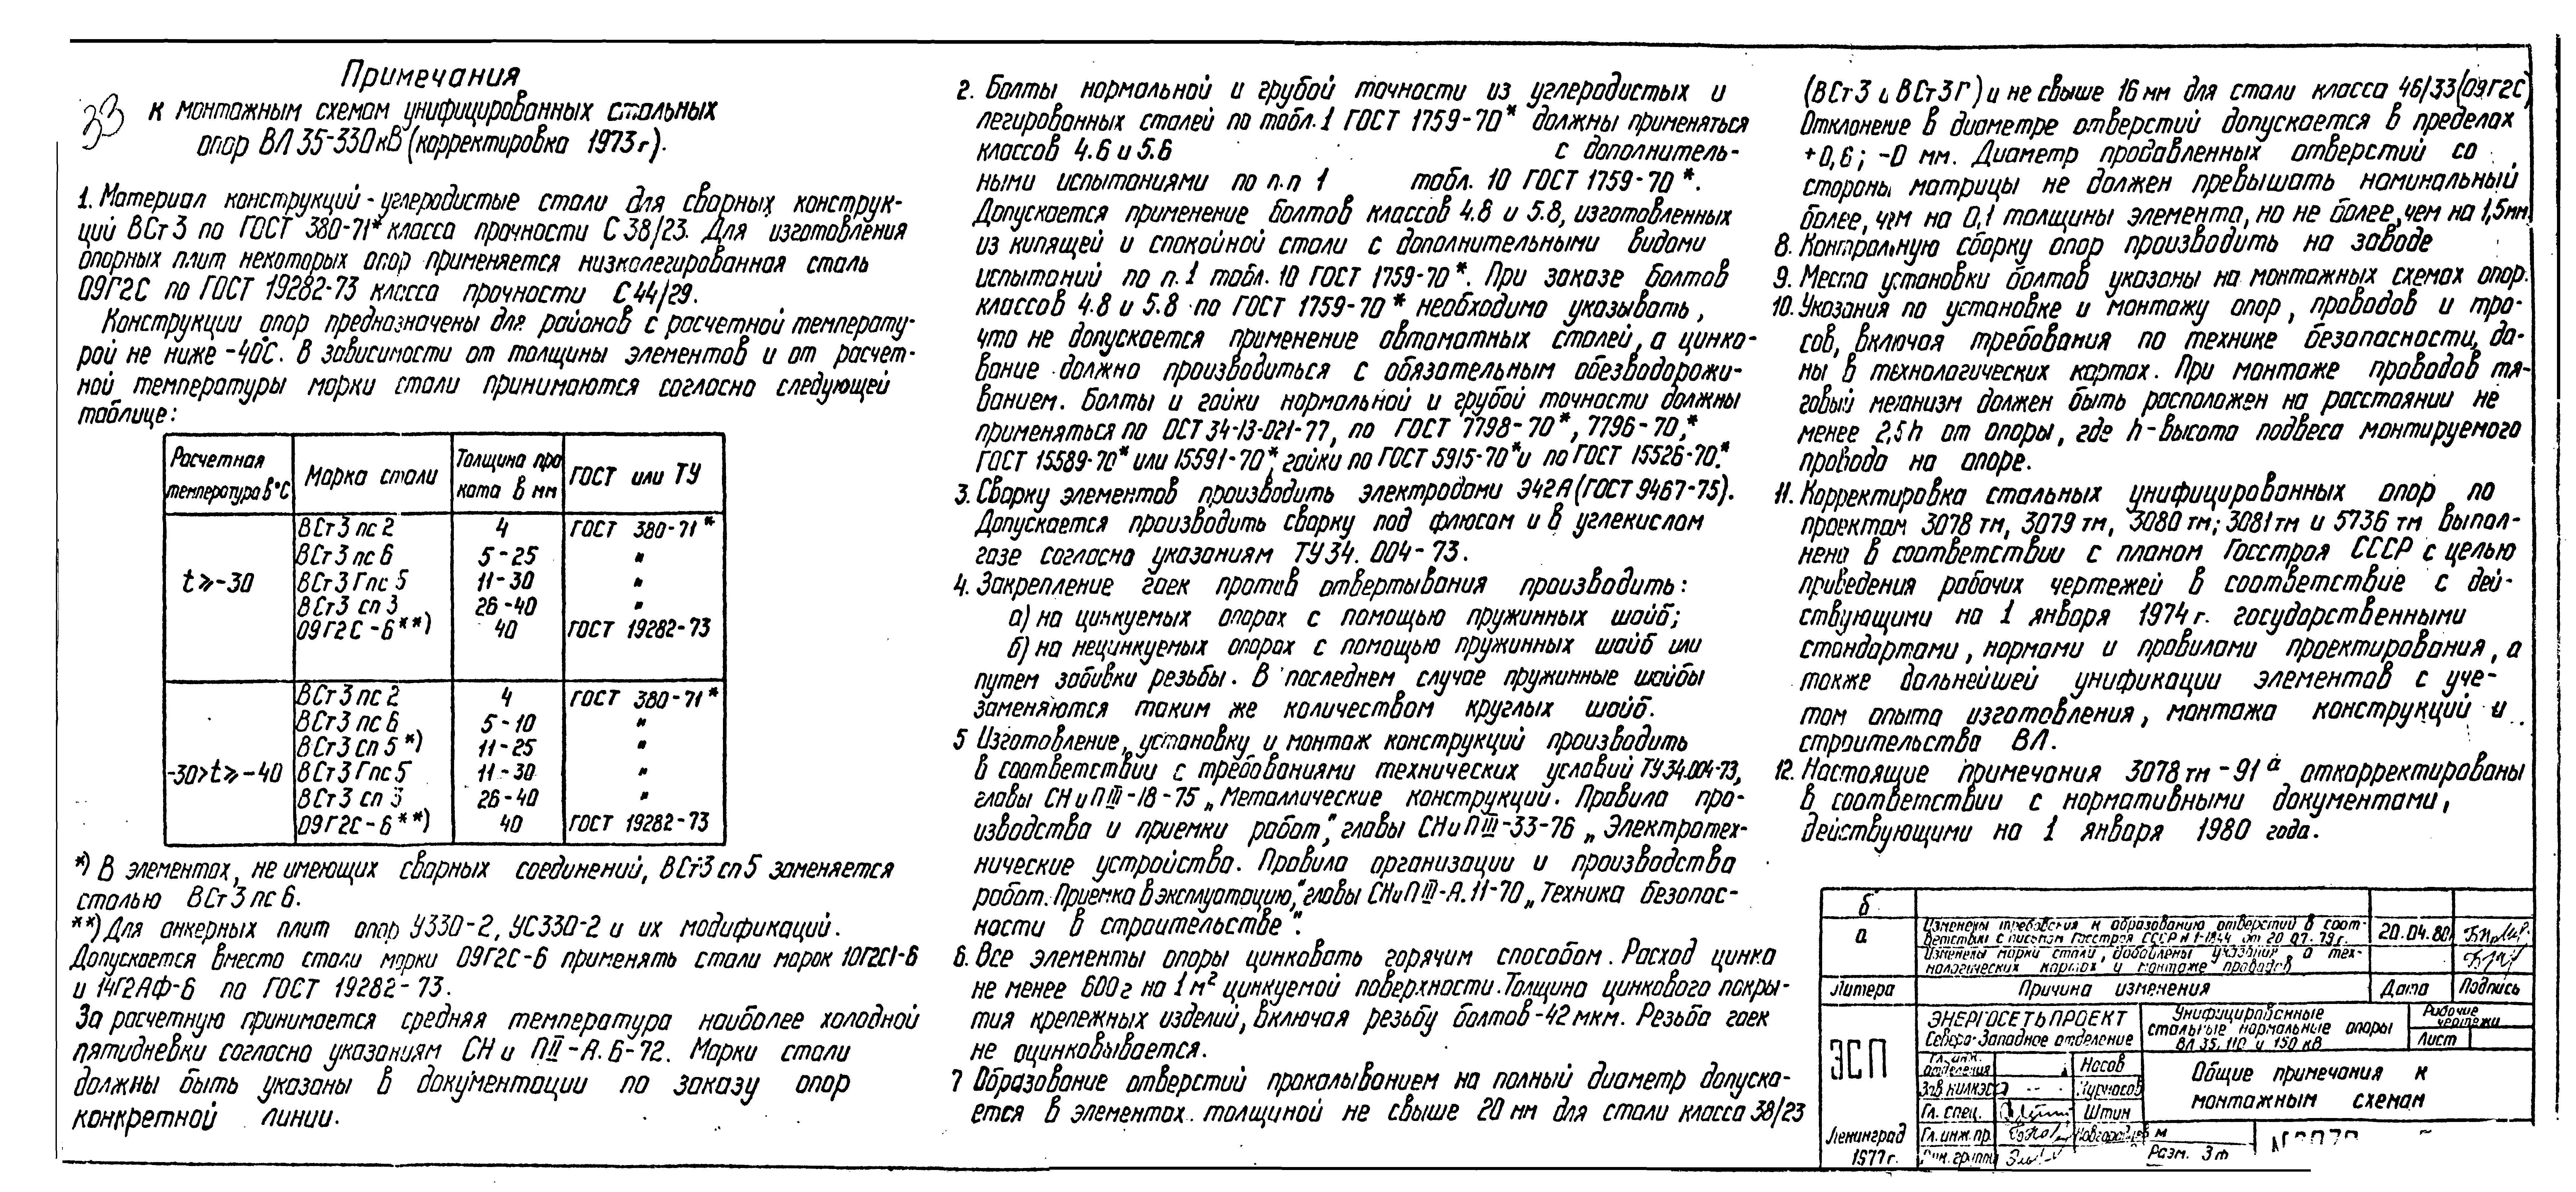 Примечания
33 к монтажным схемам унифицированных стальных
опор ВЛ 35-330 кВ (корректировка 1973 г).
1. Материал конструкций - углеродистые стали для сварных конструк-
ций ВСт 3 по ГОСТ 380-71* класса прочности С 38/23. Для изготовления
опорных плит некоторых опор применяется низколегированная сталь
09Г2С по ГОСТ 19282-73 класса прочности С 44/29.
Конструкции опор предназначены для районов с расчетной температу-
рой не ниже -40°С. В зависимости от толщины элементов и от расчет-
ной температуры марки стали принимаются согласно следующей
таблице:
Расчетная температура в °С | Марка стали | Толщина проката в мм | ГОСТ или ТУ
t ⩾ -30
ВСт 3 пс 2 4 ГОСТ 380-71*
ВСт 3 пс 6 5-25 "
ВСт 3 Гпс 5 11-30 "
ВСт 3 сп 3 26-40 "
09Г2С-6**) 40 ГОСТ 19282-73
-30 > t ⩾ -40
ВСт 3 пс 2 4 ГОСТ 380-71*
ВСт 3 пс 6 5-10 "
ВСт 3 сп 5*) 11-25 "
ВСт 3 Гпс 5 11-30 "
ВСт 3 сп 3 26-40 "
09Г2С-6**) 40 ГОСТ 19282-73
*) В элементах, не имеющих сварных соединений, ВСт3 сп 5 заменяется
сталью ВСт 3 пс 6.
**) Для анкерных плит опор У330-2, УС330-2 и их модификаций.
Допускается вместо стали марки 09Г2С-6 применять стали марок 10Г2С1-6
и 14Г2АФ-6 по ГОСТ 19282-73.
За расчетную принимается средняя температура наиболее холодной
пятидневки согласно указаниям СН и П II-А.6-72. Марки стали
должны быть указаны в документации по заказу опор
конкретной линии.
2. Болты нормальной и грубой точности из углеродистых и
легированных сталей по табл. 1 ГОСТ 1759-70* должны применяться
классов 4.6 и 5.6 с дополнитель-
ными испытаниями по п.п 1 табл. 10 ГОСТ 1759-70*.
Допускается применение болтов классов 4.8 и 5.8, изготовленных
из кипящей и спокойной стали с дополнительными видами
испытаний по п. 1 табл. 10 ГОСТ 1759-70*. При заказе болтов
классов 4.8 и 5.8 по ГОСТ 1759-70* необходимо указывать,
что не допускается применение автоматных сталей, а цинко-
вание должно производиться с обязательным обезводорожи-
ванием. Болты и гайки нормальной и грубой точности должны
применяться по ОСТ 34-13-021-77, по ГОСТ 7798-70*, 7796-70,*
ГОСТ 15589-70* или 15591-70*, гайки по ГОСТ 5915-70* и по ГОСТ 15526-70.*
3. Сварку элементов производить электродами Э42А (ГОСТ 9467-75).
Допускается производить сварку под флюсом и в углекислом
газе согласно указаниям ТУ 34. 004-73.
4. Закрепление гаек против отвертывания производить:
а) на цинкуемых опорах с помощью пружинных шайб;
б) на нецинкуемых опорах с помощью пружинных шайб или
путем забивки резьбы. В последнем случае пружинные шайбы
заменяются таким же количеством круглых шайб.
5 Изготовление, установку и монтаж конструкций производить
в соответствии с требованиями технических условий ТУ 34.004-73,
главы СН и П III-18-75 „Металлические конструкции. Правила про-
изводства и приемки работ", главы СН и П III-33-76 „Электротех-
нические устройства. Правила организации и производства
работ. Приемка в эксплуатацию", главы СН и П III-А.11-70 „Техника безопас-
ности в строительстве".
6. Все элементы опоры цинковать горячим способом. Расход цинка
не менее 600 г на 1 м² цинкуемой поверхности. Толщина цинкового покры-
тия крепежных изделий, включая резьбу болтов - 42 мкм. Резьба гаек
не оцинковывается.
7 Образование отверстий прокалыванием на полный диаметр допуска-
ется в элементах толщиной не свыше 20 мм для стали класса 38/23
(ВСт 3 и ВСт 3 Г) и не свыше 16 мм для стали класса 46/33 (09Г2С)
Отклонение в диаметре отверстий допускается в пределах
+0,6; -0 мм. Диаметр продавленных отверстий со
стороны матрицы не должен превышать номинальный
более, чем на 0,1 толщины элемента, но не более, чем на 1,5мм
8. Контрольную сборку опор производить на заводе
9. Места установки болтов указаны на монтажных схемах опор.
10. Указания по установке и монтажу опор, проводов и тро-
сов, включая требования по технике безопасности, да-
ны в технологических картах. При монтаже проводов тя-
говый механизм должен быть расположен на расстоянии не
менее 2,5h от опоры, где h - высота подвеса монтируемого
провода на опоре.
11. Корректировка стальных унифицированных опор по
проектам 3078 тм, 3079 тм, 3080 тм; 3081 тм и 5736 тм выпол-
нена в соответствии с планом Госстроя СССР с целью
приведения рабочих чертежей в соответствие с дей-
ствующими на 1 января 1974 г. государственными
стандартами, нормами и правилами проектирования, а
также дальнейшей унификации элементов с уче-
том опыта изготовления, монтажа конструкций и
строительства ВЛ.
12. Настоящие примечания 3078 тм - 91а откорректированы
в соответствии с нормативными документами,
действующими на 1 января 1980 года.
б
а Изменены требования к образованию отверстий в соот-
ветствии с письмом Госстроя СССР 20.04.80
Изменены марки стали, добавлены указания о тех-
нологических картах и монтаже проводов
Литера Причина изменения Дата Подпись
ЭСП
ЭНЕРГОСЕТЬПРОЕКТ
Северо-Западное отделение
Унифицированные
стальные нормальные опоры
ВЛ 35, 110 и 150 кВ
Рабочие чертежи
Лист
Гл. инж. отделения Носов
Общие примечания к
монтажным схемам
Гл. спец. Штин
Ленинград
1977 г.
Гл. инж. пр.
М
Разм. 3ф